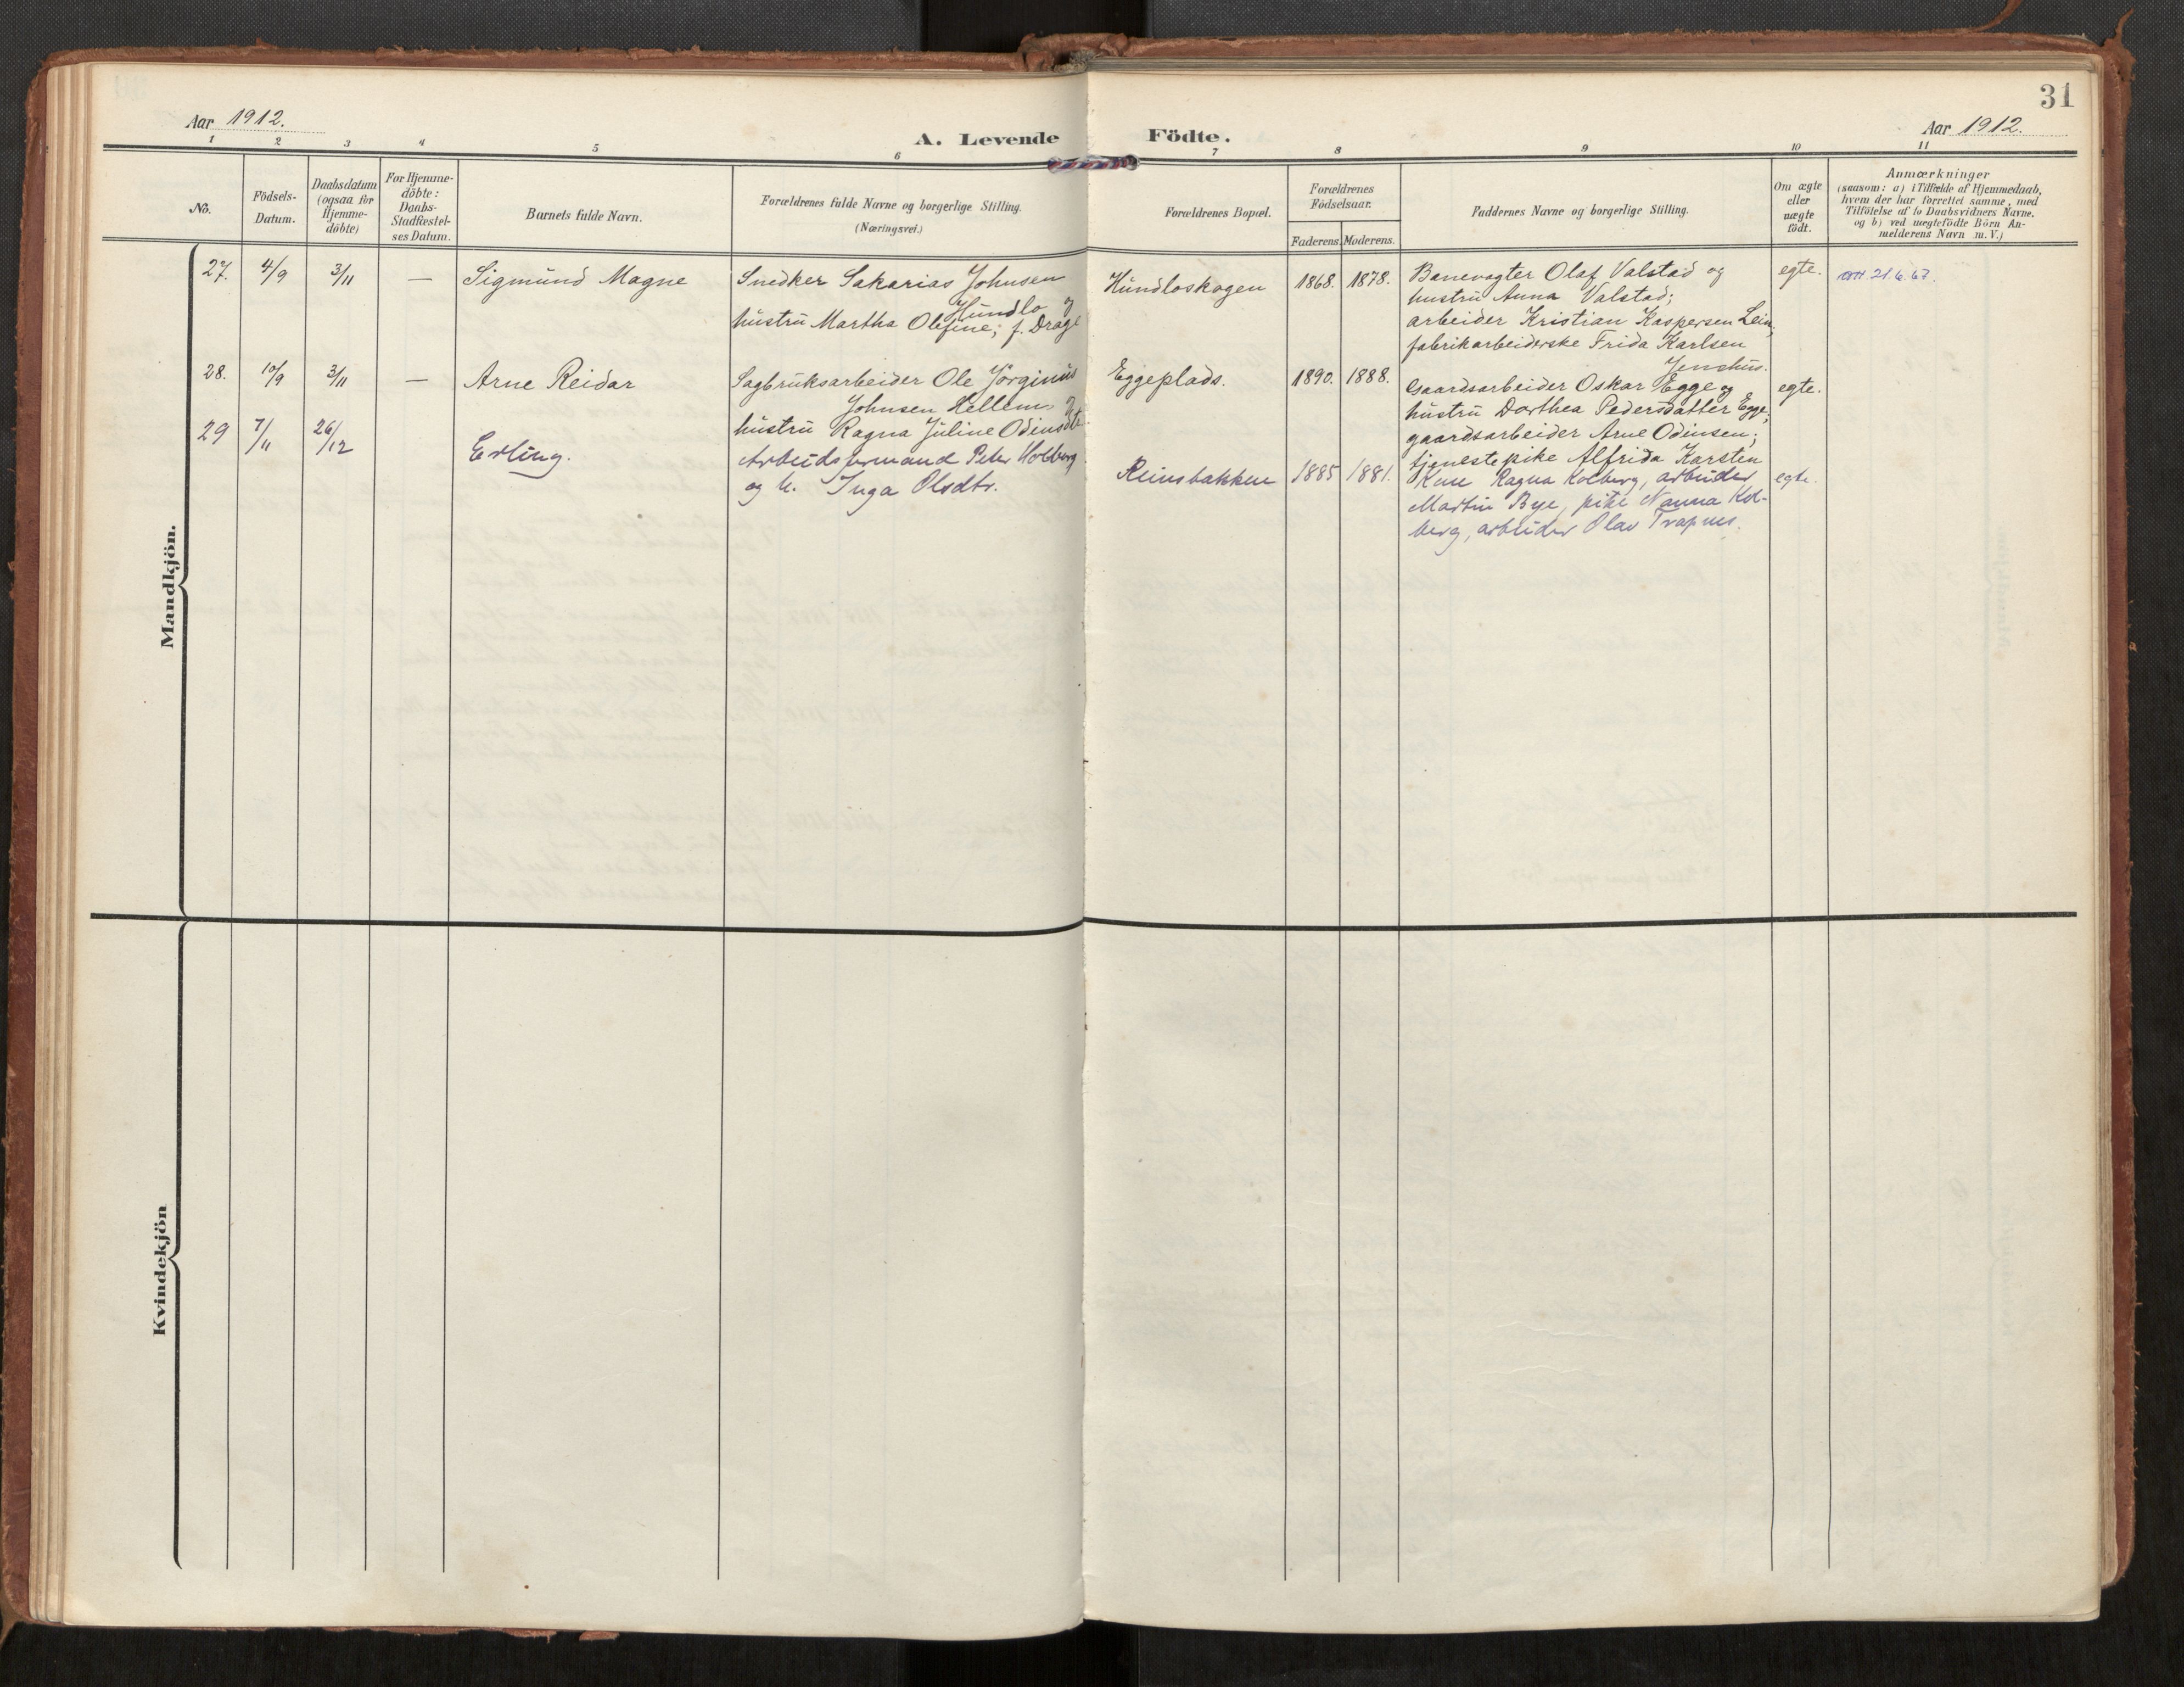 31
Aar 1912.
A. Levende Födte.
Aar 1912.
1 2 3 4 5 6 7 8 9 10 11
No.
Födsels-
Datum.
Daabsdatum
(ogsaa for
Hjemme-
döbte)
For Hjemme-
döbte:
Daabs-
Stadfæstel-
ses Datum.
Barnets fulde Navn.
Forældrenes fulde Navne og borgerlige Stilling.
(Næringsvei.)
Forældrenes Bopæl.
Forældrenes
Födselsaar.
Faderens. Moderens.
Faddernes Navne og borgerlige Stilling.
Om ægte
eller
uægte
födt.
Anmærkninger
(saasom: a) i Tilfælde af Hjemmedaab,
hvem der har forrettet samme, med
Tilföielse af to Daabsvidners Navne.
og b) ved uægtefödte Börn An-
melderens Navn m. V.)
Mandkjön.
27. 4/9 3/11 — Sigmund Magne
Snedker Sakarias Johnsen
Hundlo og
hustru Martha Olefine; f. Drage
Hundloskogen 1868. 1878.
Banevogter Olaf Valstad og
hustru Anna Valstad;
arbeider Kristian Kaspersen Lein;
fabrikarbeiderske Frida Karlsen
egte.
21.6.67.
28. 10/9 3/11 — Arne Reidar
Sagbruksarbeider Ole Jörginus
Johnsen Hellem og
hustru Ragna Juline Odinsdt.
Eggeplads. 1890. 1888.
Gaardsarbeider Oskar Egge og
hustru Dorthea Pedersdatter Egge;
gaardsarbeider Arne Odinsen;
tjenestepike Alfrida Karsten
egte.
29 7/11 26/12 Erling.
Arbeidsformand Peter Holberg
og h. Inga Olsdtr.
Reinsbakken 1885 1881.
Kone Ragna Kolberg, arbeider
Martin Bye, pike Nanna Kol-
berg, arbeider Olav Trapnes.
egte.
Kvindekjön